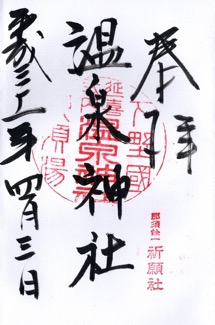 奉拝
下野國
延喜式内
温泉神社
那須湯
那須余一
祈願社
温泉神社
平成三十一年四月三日